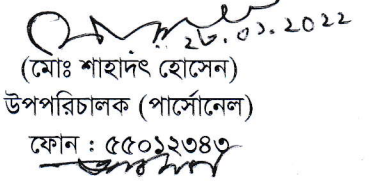 ২৩.০১.2022
(মোঃ শাহাদৎ হোসেন)
উপপরিচালক (পার্সোনেল)
ফোন : ৫৫০১২৩৪৩